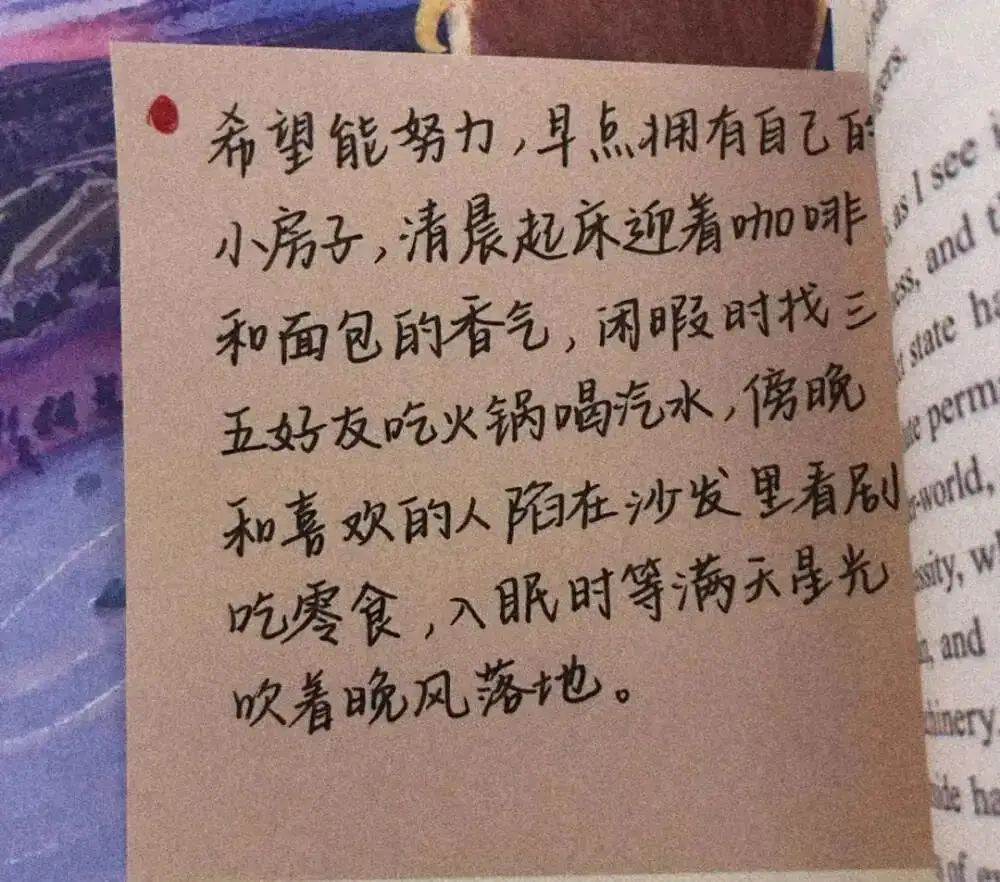 希望能努力,早点拥有自己的
小房子,清晨起床迎着咖啡
和面包的香气,闲暇时找三
五好友吃火锅喝汽水,傍晚
和喜欢的人陷在沙发里看剧
吃零食,入眠时等满天星光
吹着晚风落地。
as I see
and
state
perm
world,
and
of